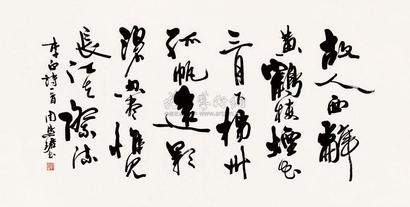 故人西辭
黄鶴樓煙花
三月下揚州
孤帆遠影
碧空盡惟見
長江天際流
李白詩一首 周慧珺書